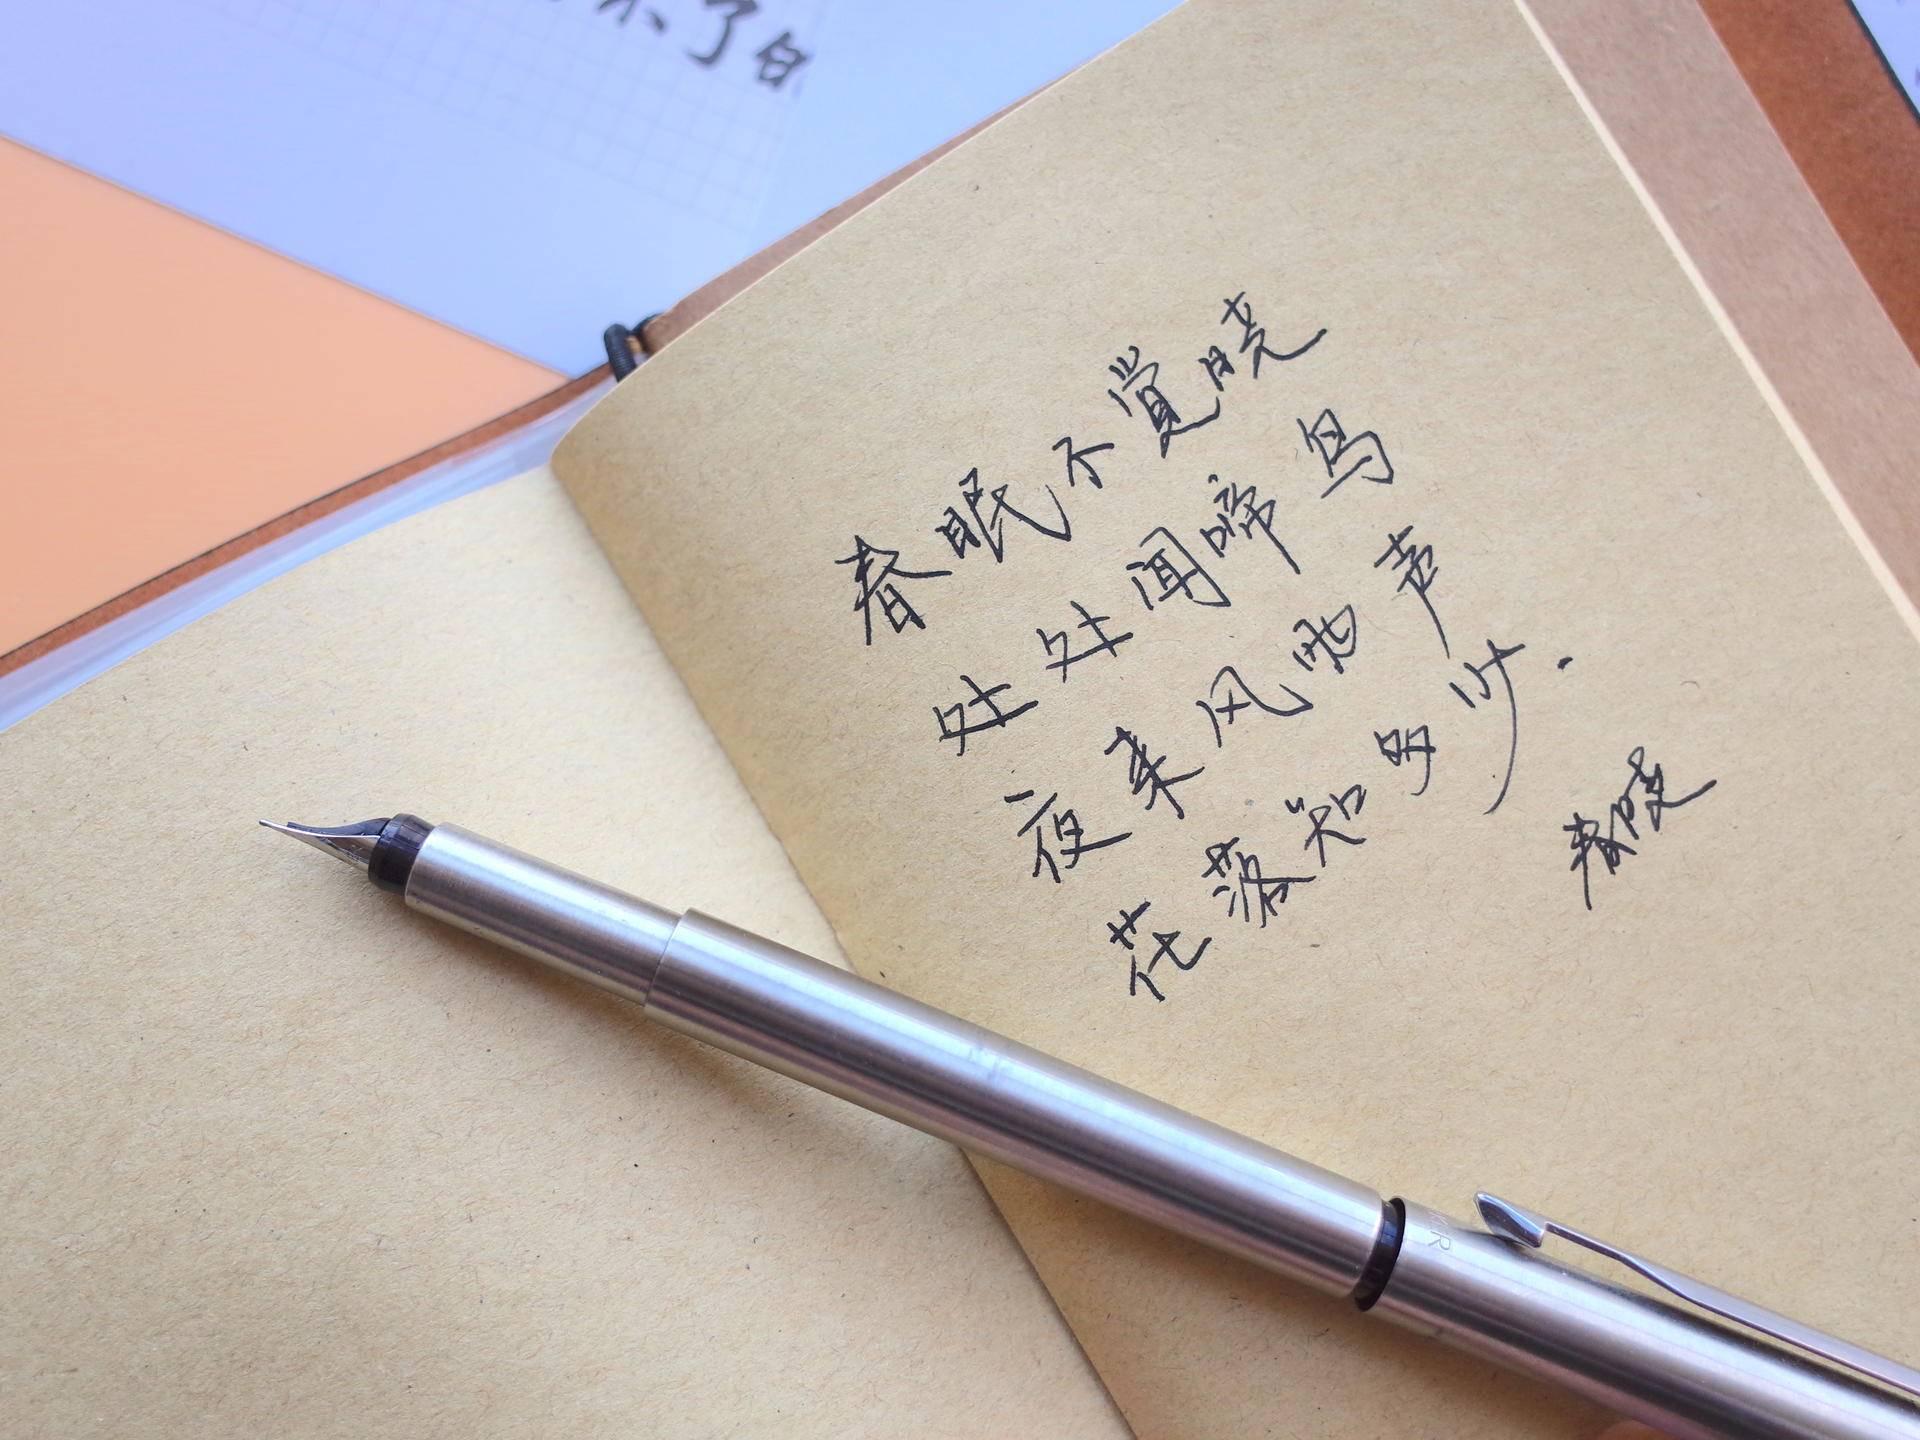 不了的
春眠不覚晓
处处闻啼鸟
夜来风雨声
花落知多少.
春晓